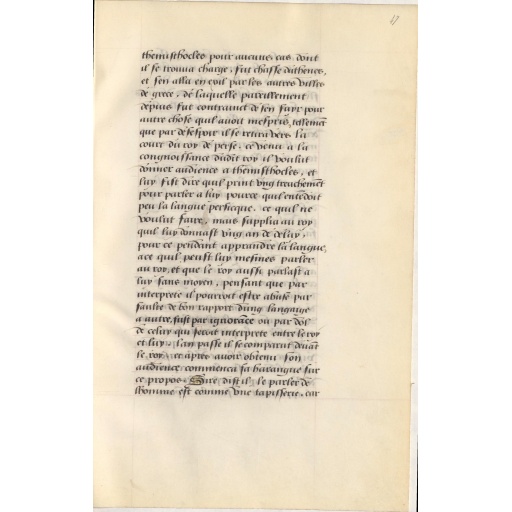 themisthocles pour aucuns cas dont
il se trouva charge, fut chasse dathenes,
et sen alla en exil par les autres villes
de grece, de laquelle pareillement
depuis fut contrainct de sen fuyr pour
autre chose quil avoit mespris, tellement
que par desespoir il se retira vers la
court du roy de perse. ce venu a la
congnoissance dudit roy il voulut
donner audience a themisthocles, et
luy fist dire quil print ung truchement
pour parler a luy pource quil entendoit
peu la langue persicque. ce quil ne
voulut faire, mais supplia au roy
quil luy donnast ung an de delay,
pour ce pendent apprandre la langue,
a ce quil peust luy mesmes parler
au roy, et que le roy aussi parlast a
luy sans moyen, pensant que par
interprete il pourroit estre abuse par
faulte de bon rapport dung langaige
a autre, fust par ignorance ou par dol
de celuy qui seroit interprete entre le roy
et luy. lan passe il se comparut devant
le roy, et apres avoir obtenu son
audience commenca sa harangue sur
ce propos. Sire dist il, le parler de
lhomme est comme une tapisserie, car